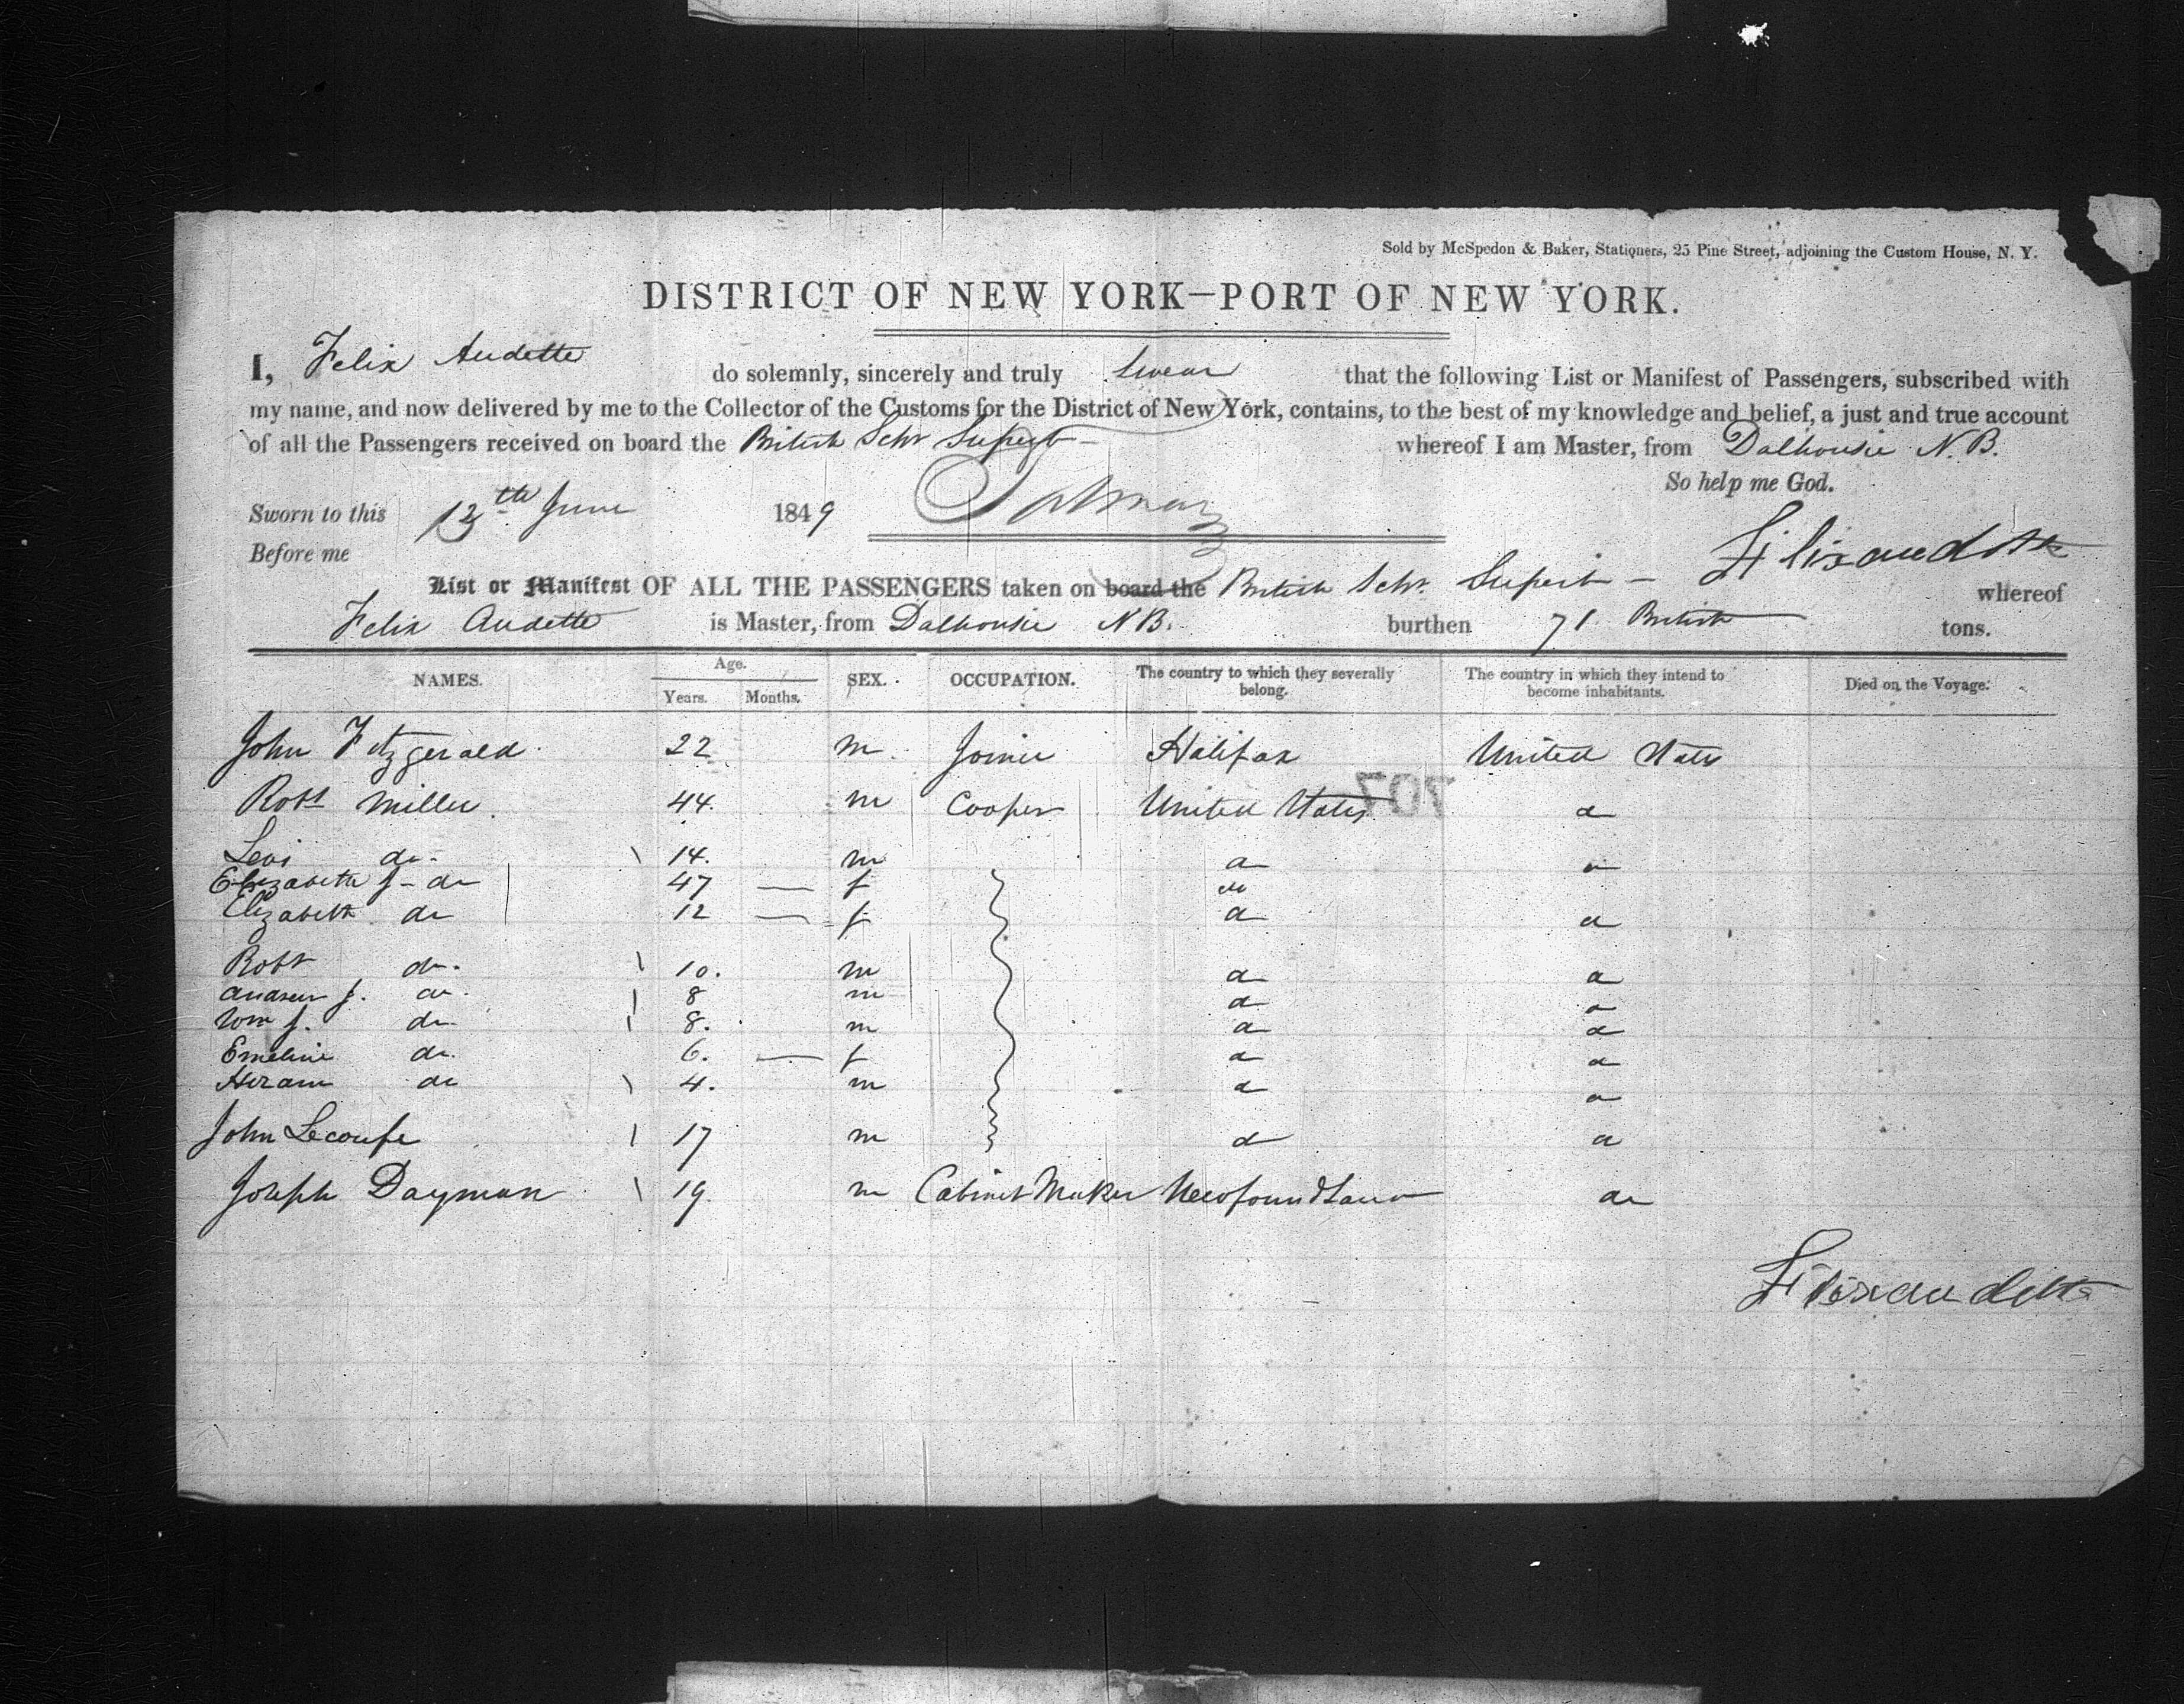 Sold by McSpedon & Baker, Stationers, 25 Pine Street, adjoining the Custom House, N. Y.
DISTRICT OF NEW YORK—PORT OF NEW YORK.
I, Felix Audette do solemnly, sincerely and truly Swear that the following List or Manifest of Passengers, subscribed with
my name, and now delivered by me to the Collector of the Customs for the District of New York, contains, to the best of my knowledge and belief, a just and true account
of all the Passengers received on board the British Schr Superb whereof I am Master, from Dalhousie N.B.
So help me God.
Sworn to this 13th June 1849
Felix audette
Before me
List or Manifest OF ALL THE PASSENGERS taken on board the British Schr. Superb — whereof
Felix Audette is Master, from Dalhousie N.B. burthen 71 British tons.
NAMES. Age. Years. Months. SEX. OCCUPATION. The country to which they severally belong. The country in which they intend to become inhabitants. Died on the Voyage.
John Fitzgerald 22 m Joiner Halifax United States
Robt Miller 44 m Cooper United States do
707
Levi do 14. m do do
Elizabeth J— do 47 — f do
Elizabeth do 12 — f do do
Robt do 10. m do do
Andrew J. do 8 m do do
Wm J. do 8. m do do
Emeline do 6. — f do do
Hiram do 4. m do do
John Lecoufe 17 m do do
Joseph Dayman 19 m Cabinet Maker Newfoundland do
Felix audette